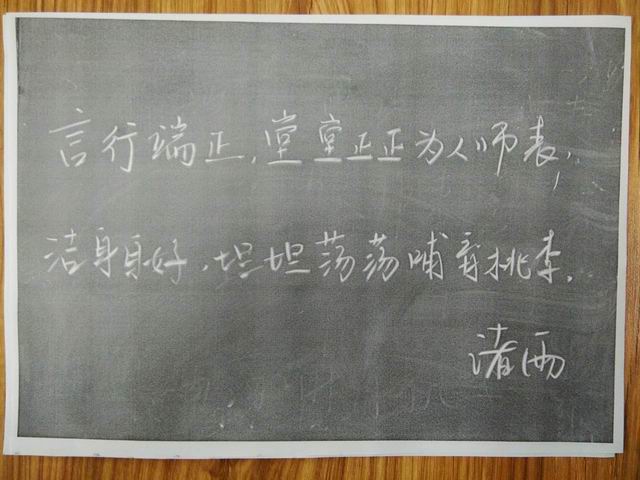 言行端正,堂堂正正为人师表,
洁身身好,坦坦荡荡哺育桃李.
渚雨